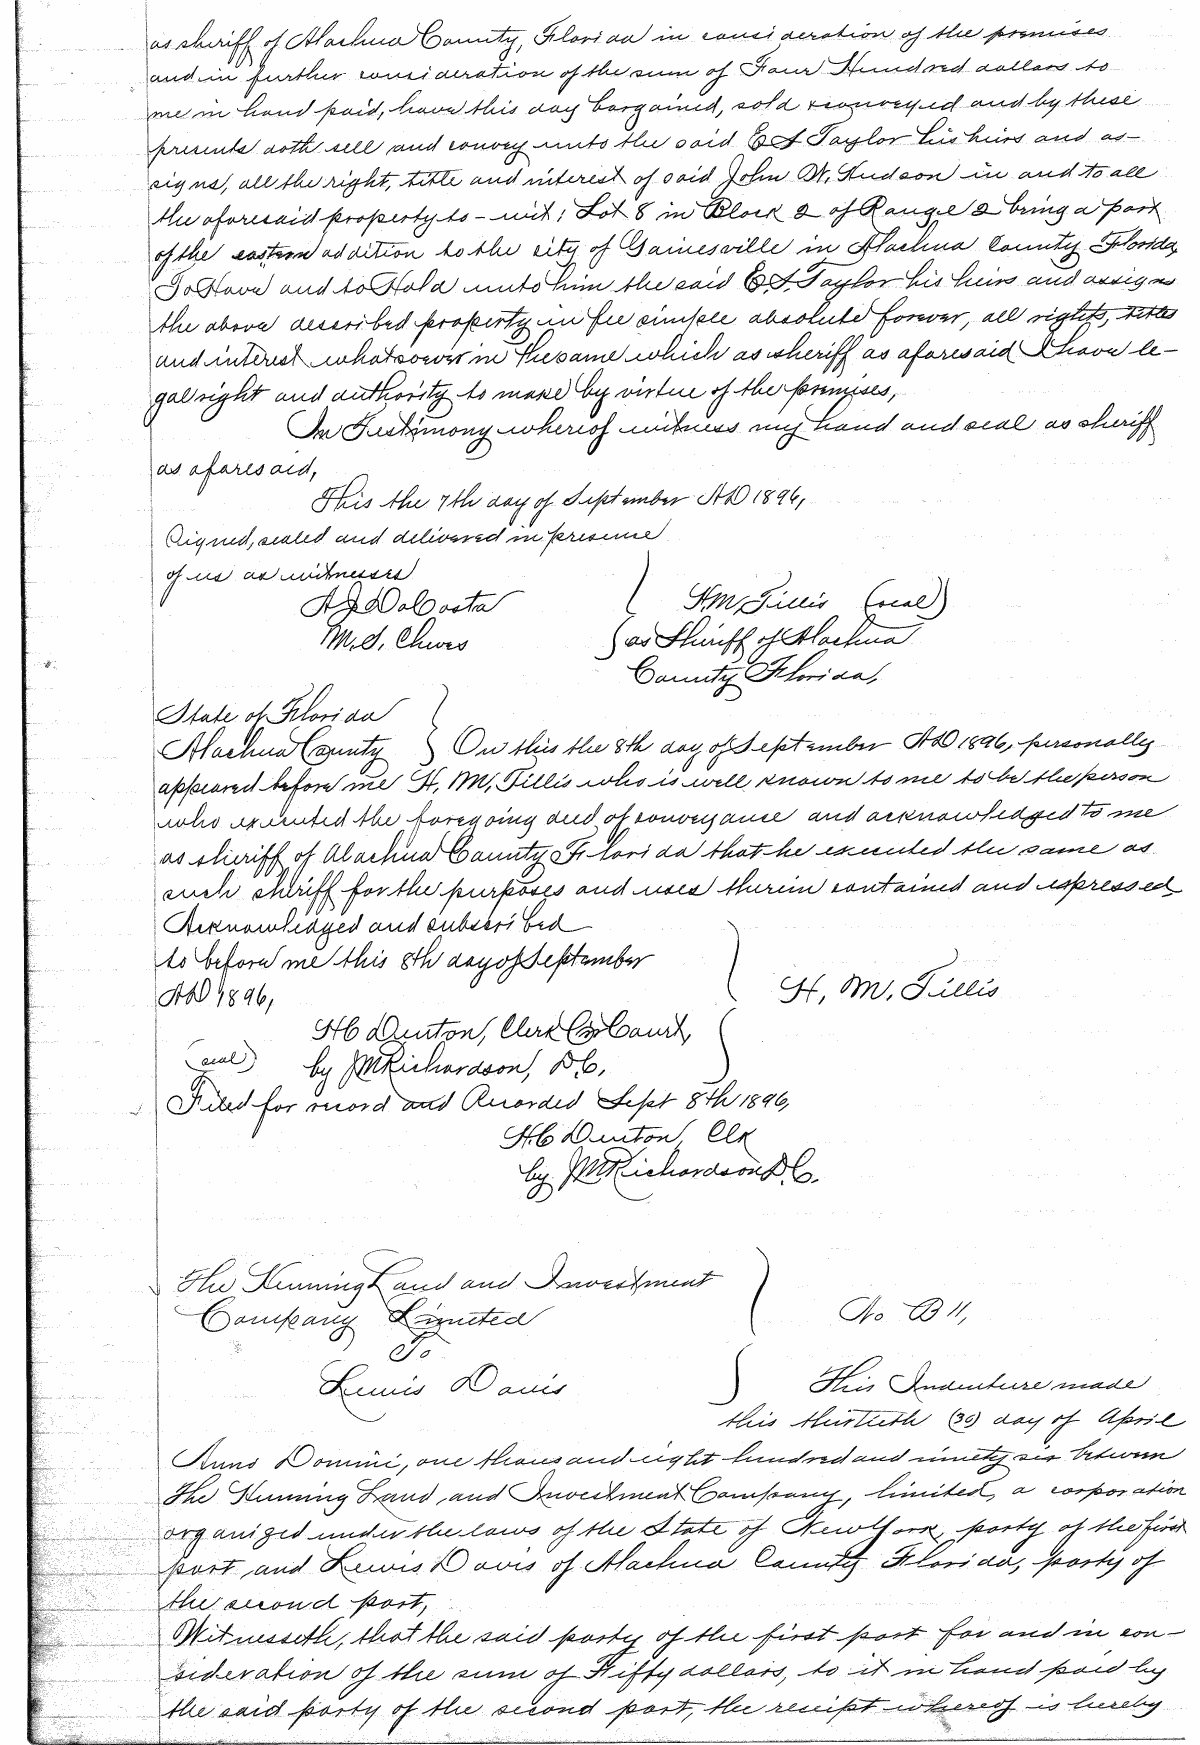 as sheriff of Alachua County, Florida in consideration of the premises
and in further consideration of the sum of Four Hundred dollars to
me in hand paid, have this day bargained, sold & conveyed and by these
presents doth sell and convey unto the said E A Taylor his heirs and as-
signs, all the right, title and interest of said John W. Hudson in and to all
the aforesaid property to-wit; Lot 8 in Block 2 of Range 2 being a part
of the eastern addition to the city of Gainesville in Alachua County Florida,
To Have and to Hold unto him the said E. A. Taylor his heirs and assigns
the above described property in fee simple absolute forever, all rights, titles
and interest whatsoever in the same which as sheriff as aforesaid I have le-
gal right and authority to make by virtue of the premises,
In Testimony whereof witness my hand and seal as sheriff
as aforesaid,
This the 7th day of September AD 1896,
Signed, sealed and delivered in presence
of us as witnesses
DaCosta H.M. Tillis (seal)
M. S. as Sheriff of Alachua
County Florida,
State of Florida
Alachua County } On this the 8th day of September AD 1896, personally
appeared before me H. M. Tillis who is well known to me to be the person
who executed the foregoing deed of conveyance and acknowledged to me
as sheriff of Alachua County Florida that he executed the same as
such sheriff for the purposes and uses therein contained and expressed
Acknowledged and subscribed
to before me this 8th day of September
AD 1896, H. M. Tillis
H C Denton, Clerk Cir Court,
(seal) by J M Richardson, D.C.
Filed for record and Recorded Sept 8th 1896,
H. C Denton, Clk
by J M Richardson D C.
The Henning Land and Investment
Company Limited No B 11,
To
Lewis Davis This Indenture made
this thirtieth (30) day of April
Anno Domini, one thousand eight hundred and ninety six between
The Henning Land and Investment Company, limited, a corporation
organized under the laws of the State of New York, party of the first
part and Lewis Davis of Alachua County Florida, party of
the second part,
Witnesseth, that the said party of the first part for and in con-
sideration of the sum of Fifty dollars, to it in hand paid by
the said party of the second part, the receipt whereof is hereby